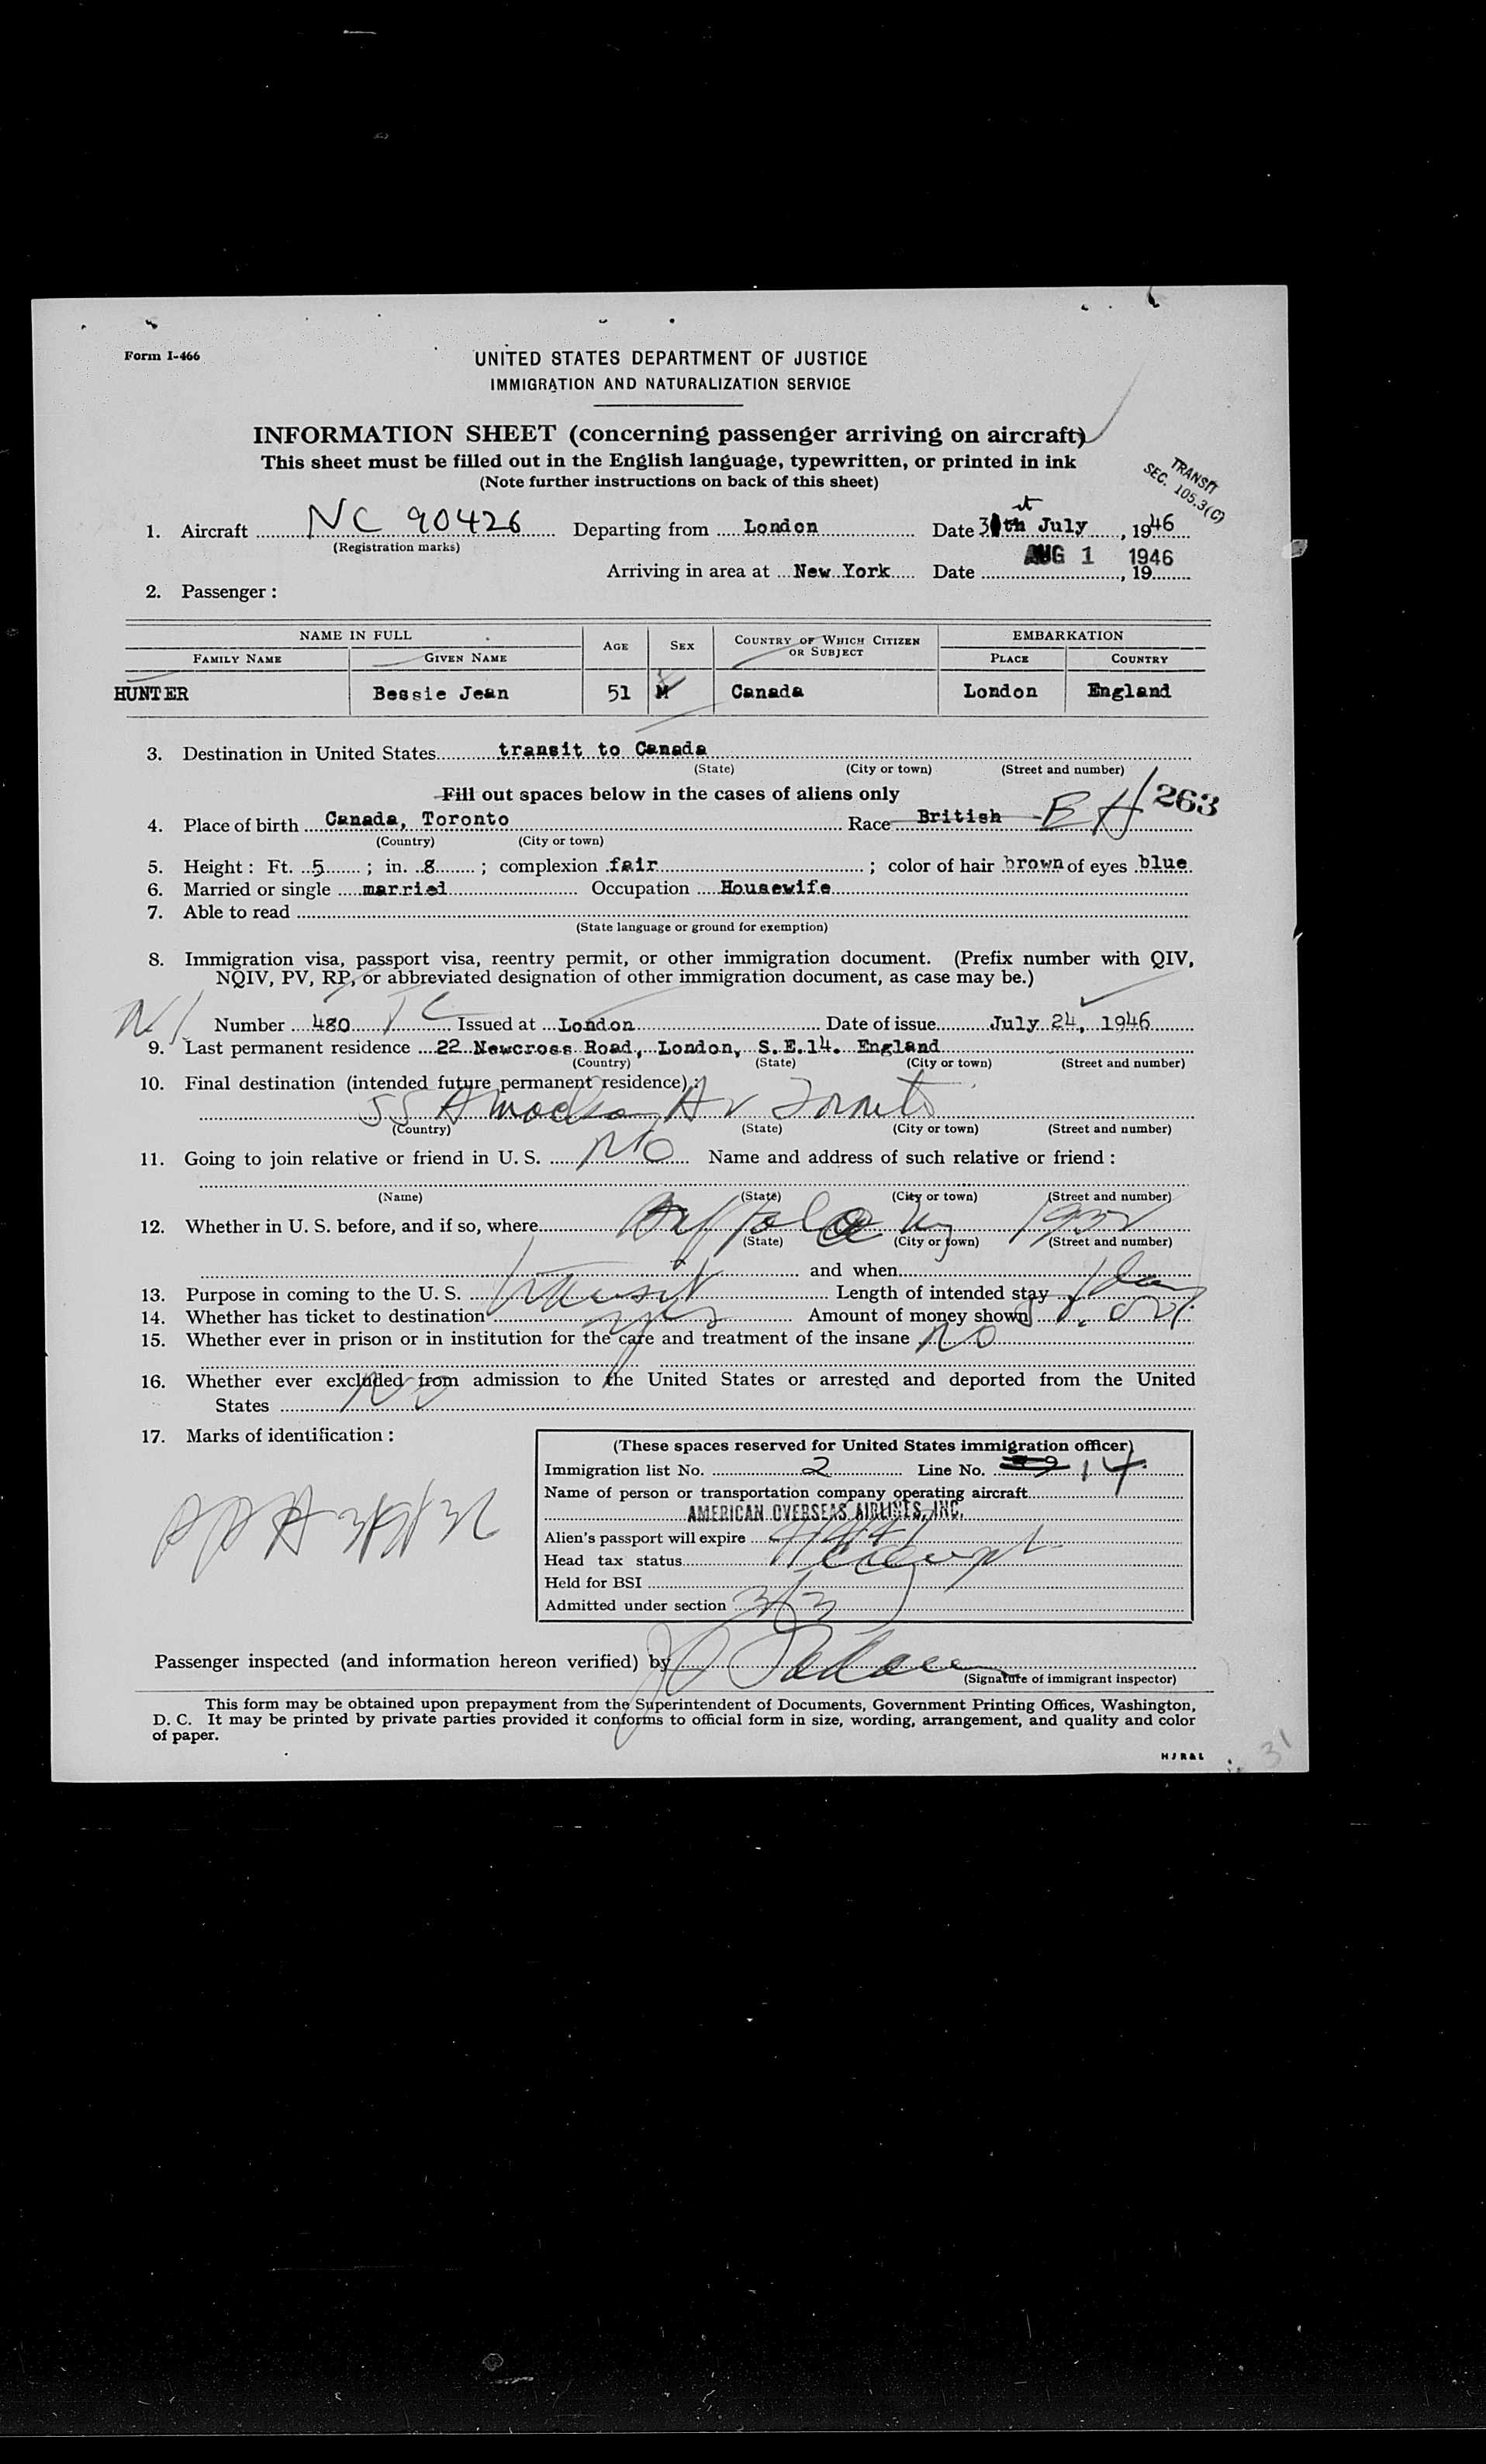 Form I-466
UNITED STATES DEPARTMENT OF JUSTICE
IMMIGRATION AND NATURALIZATION SERVICE
INFORMATION SHEET (concerning passenger arriving on aircraft)
This sheet must be filled out in the English language, typewritten, or printed in ink
(Note further instructions on back of this sheet)
TRANSIT
SEC. 105.3(C)
1. Aircraft NC 90426 Departing from London Date 31st July, 1946
(Registration marks)
Arriving in area at New York Date AUG 1 1946, 19
2. Passenger:
NAME IN FULL AGE SEX COUNTRY OF WHICH CITIZEN OR SUBJECT EMBARKATION
FAMILY NAME GIVEN NAME PLACE COUNTRY
HUNTER Bessie Jean 51 M Canada London England
3. Destination in United States transit to Canada
(State) (City or town) (Street and number)
Fill out spaces below in the cases of aliens only
263
4. Place of birth Canada, Toronto Race British
(Country) (City or town)
5. Height: Ft. 5; in. 8; complexion fair; color of hair brown of eyes blue
6. Married or single married Occupation Housewife
7. Able to read
(State language or ground for exemption)
8. Immigration visa, passport visa, reentry permit, or other immigration document. (Prefix number with QIV,
NQIV, PV, RP, or abbreviated designation of other immigration document, as case may be.)
Number 480 Issued at London Date of issue July 24, 1946
9. Last permanent residence 22 Newcross Road, London, S.E.14. England
(Country) (State) (City or town) (Street and number)
10. Final destination (intended future permanent residence):
55 Av Toronto
(Country) (State) (City or town) (Street and number)
11. Going to join relative or friend in U. S. NO Name and address of such relative or friend:
(Name) (State) (City or town) (Street and number)
12. Whether in U. S. before, and if so, where Buffalo NY
(State) (City or town) (Street and number)
and when
13. Purpose in coming to the U. S. transit Length of intended stay 1 day
14. Whether has ticket to destination yes Amount of money shown
15. Whether ever in prison or in institution for the care and treatment of the insane NO
16. Whether ever excluded from admission to the United States or arrested and deported from the United
States NO
17. Marks of identification:
(These spaces reserved for United States immigration officer)
Immigration list No. 2 Line No. 14
Name of person or transportation company operating aircraft
AMERICAN OVERSEAS AIRLINES, INC.
Alien's passport will expire
Head tax status
Held for BSI
Admitted under section 3/3
Passenger inspected (and information hereon verified) by
(Signature of immigrant inspector)
This form may be obtained upon prepayment from the Superintendent of Documents, Government Printing Offices, Washington,
D. C. It may be printed by private parties provided it conforms to official form in size, wording, arrangement, and quality and color
of paper.
HJR&L
31